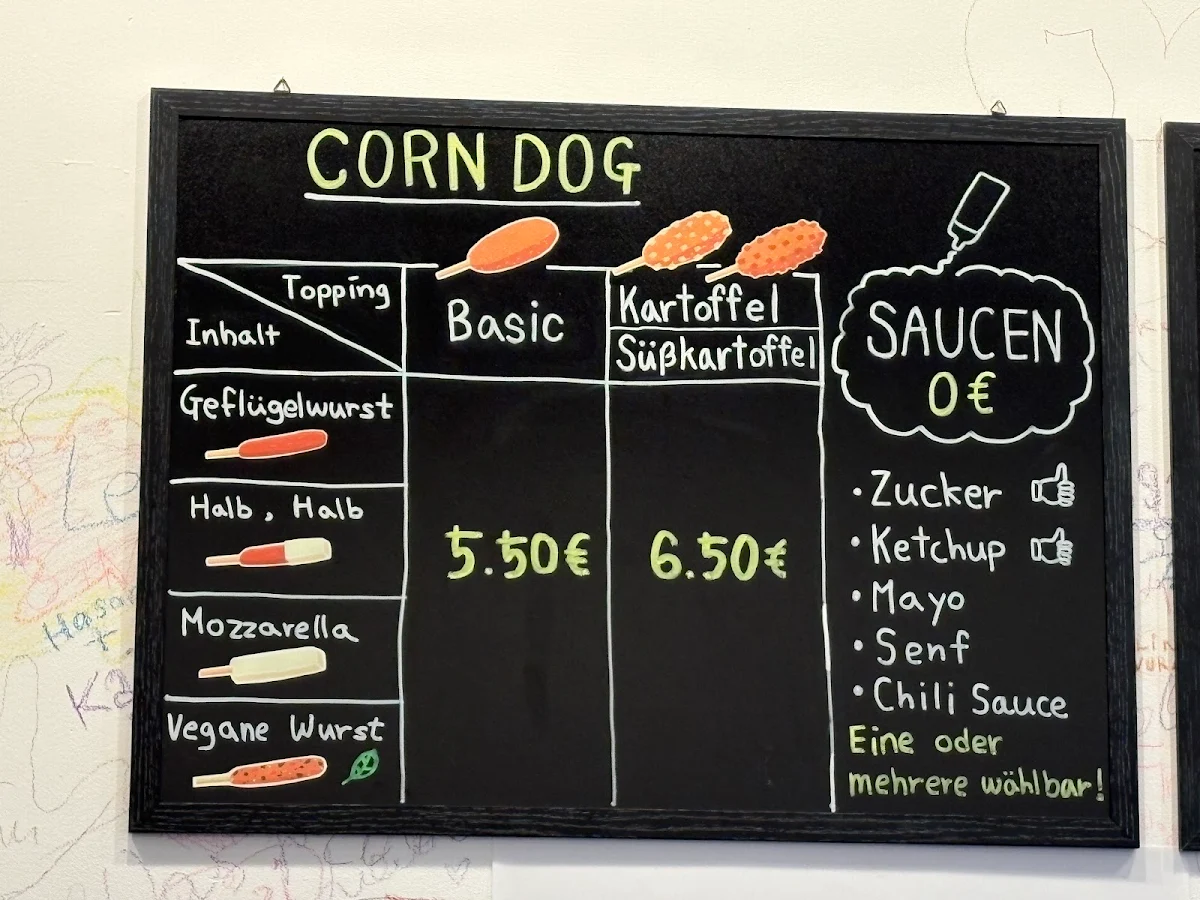 CORN DOG
Topping
Inhalt
Basic
Kartoffel
Süßkartoffel
Geflügelwurst
Halb, Halb
Mozzarella
Vegane Wurst
5.50€
6.50€
SAUCEN
0€
• Zucker
• Ketchup
• Mayo
• Senf
• Chili Sauce
Eine oder
mehrere wählbar!